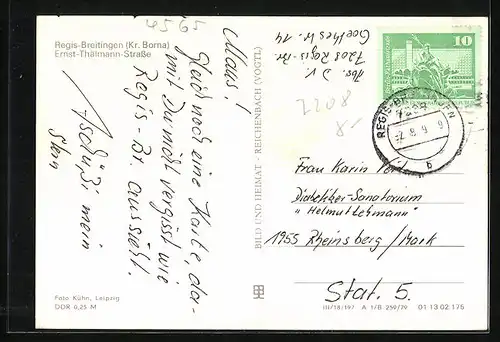 4565
Regis-Breitingen (Kr. Borna)
Ernst-Thälmann-Straße
Maus!
Gleich noch eine Karte, da-
mit Du nicht vergisst wie
Regis-Br. aussieht.
Tschüßi mein
Stern
Foto Kühn, Leipzig
DDR 0,25 M
BILD UND HEIMAT · REICHENBACH (VOGTL)
Abs. D. V.
7205 Regis-Br.
Goethestr. 14
8022
8,-
10
REGIS-BREITINGEN
7205
-7.8.9 9
b
Frau Karin
Diabetiker-Sanatorium
"Helmut Lehmann"
1955 Rheinsberg/Mark
Stat. 5.
III/18/197 A 1/B 259/79 01 13 02 175